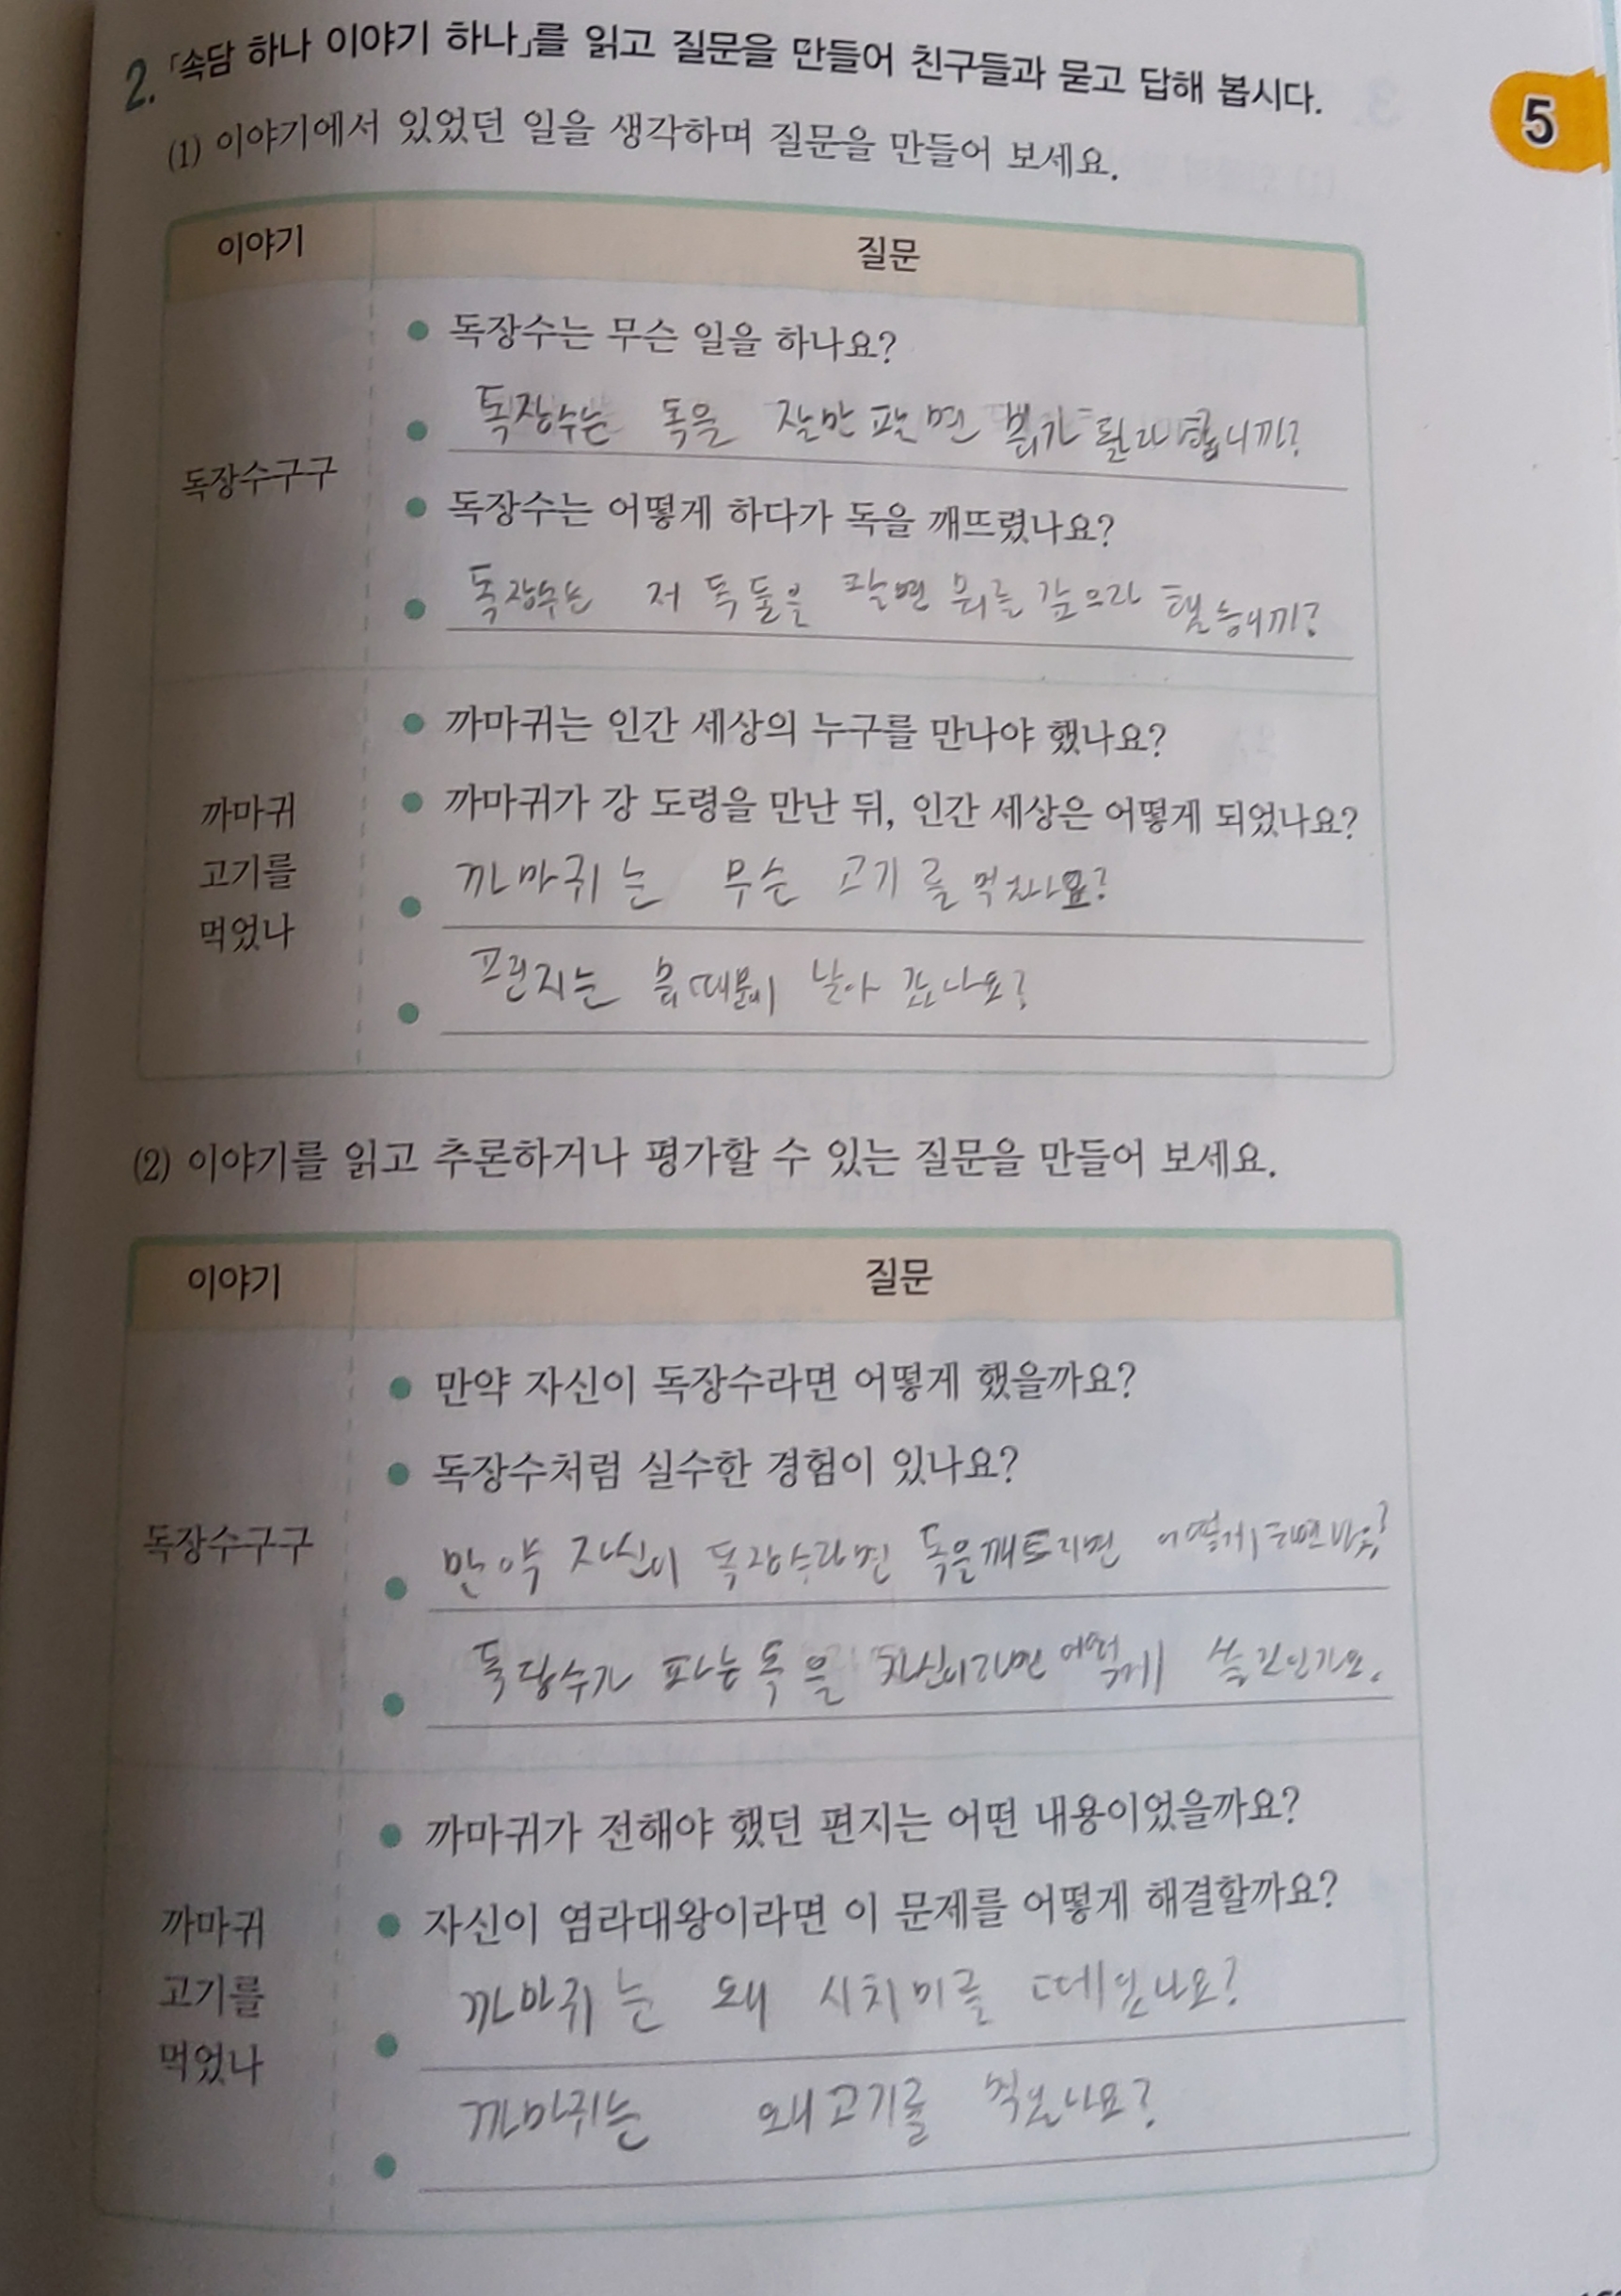 2. 「속담 하나 이야기 하나」를 읽고 질문을 만들어 친구들과 묻고 답해 봅시다.
5
(1) 이야기에서 있었던 일을 생각하며 질문을 만들어 보세요.
이야기 질문
독장수는 무슨 일을 하나요?
독장수는 독을 잘만 팔면 뭐가 될라 합니까?
독장수구구
독장수는 어떻게 하다가 독을 깨뜨렸나요?
독장수는 저 독들을 팔면 뭐를 갚으라
까마귀는 인간 세상의 누구를 만나야 했나요?
까마귀가 강 도령을 만난 뒤, 인간 세상은 어떻게 되었나요?
까마귀
고기를
먹었나
까마귀는 무슨 고기를
편지는 뭐 때문에 날아 갔나요?
(2) 이야기를 읽고 추론하거나 평가할 수 있는 질문을 만들어 보세요.
이야기 질문
만약 자신이 독장수라면 어떻게 했을까요?
독장수처럼 실수한 경험이 있나요?
독장수구구
만약 자신이 독장수라면 독을 깨트리면 어떻게
파는 독을 자신이라면
까마귀가 전해야 했던 편지는 어떤 내용이었을까요?
자신이 염라대왕이라면 이 문제를 어떻게 해결할까요?
까마귀
고기를
먹었나
까마귀는 왜 시치미를
까마귀는 왜 고기를